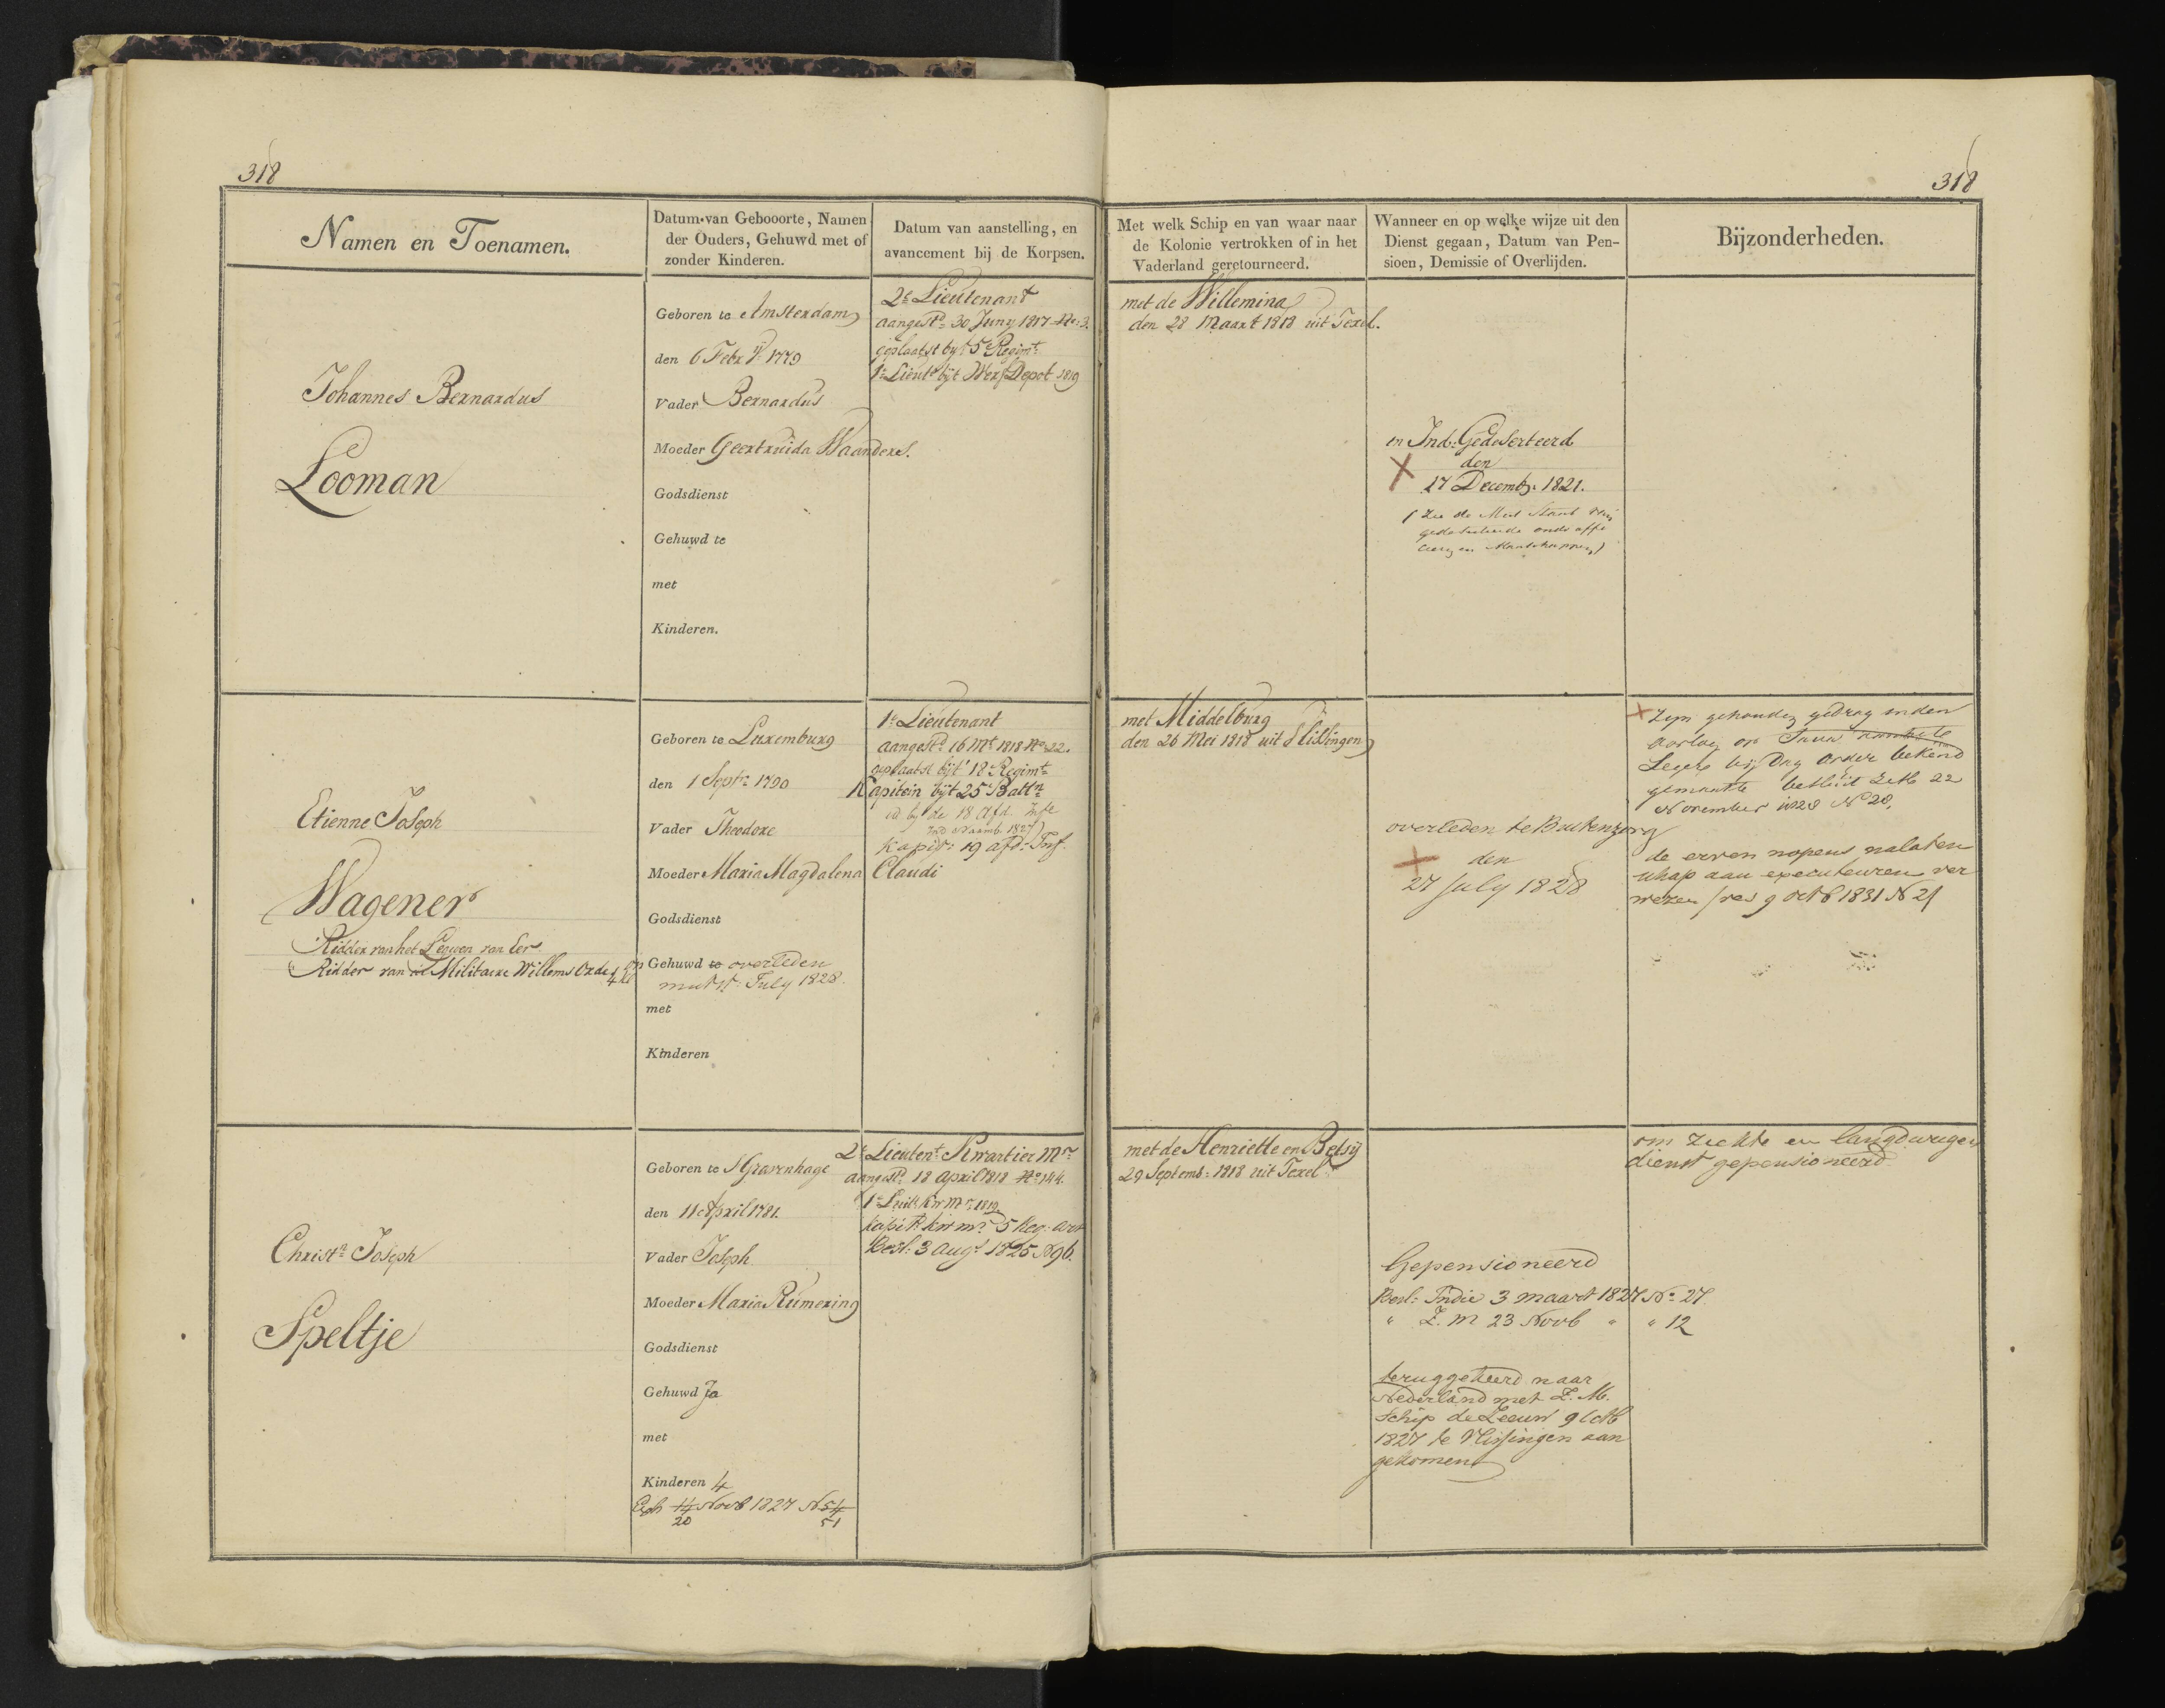 318
318
Namen en Toenamen.
Datum van Gebooorte, Namen
der Ouders, Gehuwd met of
zonder Kinderen.
Datum van aanstelling, en
avancement bij de Korpsen.
Met welk Schip en van waar naar
de Kolonie vertrokken of in het
Vaderland geretourneerd.
Wanneer en op welke wijze uit den
Dienst gegaan, Datum van Pen-
sioen, Demissie of Overlijden.
Bijzonderheden.
Johannes Bernardus
Looman
Geboren te Amsterdam
den 6 Febr 1779
Vader Bernardus
Moeder Geertruida Waanders.
Godsdienst
Gehuwd te
met
Kinderen.
2e Lieutenant
aangestd 30 Juny 1817 No: 3.
geplaatst byt 5e Regimt
1e Lieutt bijt Werf Depot 1819
met de Willemina
den 28 Maart 1818 uit Texel.
in Ind: Gedeserteerd
den
17 Decemb: 1821.
Etienne Joseph
Wagener
Ridder van het Legioen van Eer
Ridder van de Militaire Willems Orde 4 kl
Geboren te Luxemburg
den 1 Septr 1790
Vader Theodore
Moeder Maria Magdalena Claudi
Godsdienst
Gehuwd te overleden
July 1828.
met
Kinderen
1e Lieutenant
aangestd 16 Mt 1818 No 22.
geplaatst bijt 18e Regimt
Kapitein bijt 25e Battn
id by de 18 Afd. Infe
1827
Kapit: 19 afd: Inf.
met Middelburg
den 26 Mei 1818 uit Vlissingen
overleden te Buitenzorg
den
27 July 1828
Zyn gehouden gedrag in den
oorlog op Java
Legers bij Dag Order bekend
gemaakte besluit 22
November 1828 No 28.
de erven nopens nalaten
schap aan executeuren ver
wezen / res 9 octb 1831 N 21
Christn Joseph
Speltje
Geboren te S Gravenhage
den 11 April 1781.
Vader Joseph
Moeder Maria Rumering
Godsdienst
Gehuwd Ja
met
Kinderen 4
14 Novb 1827 N 54
20 51
2e Lieutent Kwartier Mr
aangestd 18 April 1818 No 144.
1e Luit: kw Mr 1819
Kapit: kw mr 5 Reg: art
Besl: 3 Augt 1825 N 96.
met de Henriette en Betsij
29 Septemb: 1818 uit Texel
Gepensioneerd
Besl: Indie 3 maart 1827 No 27.
" Z. M 23 Novb " " 12
teruggekeerd naar
Nederland met Z. M.
Schip de Leeuw 9 Octb
1827 te Vlissingen aan
gekomen
om ziekte en langdurigen
dienst gepensioneerd